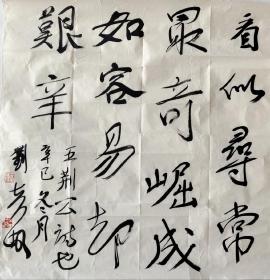 看似尋常
最奇崛成
如容易却
艱辛
王荆公詩也
辛巳冬月
劉